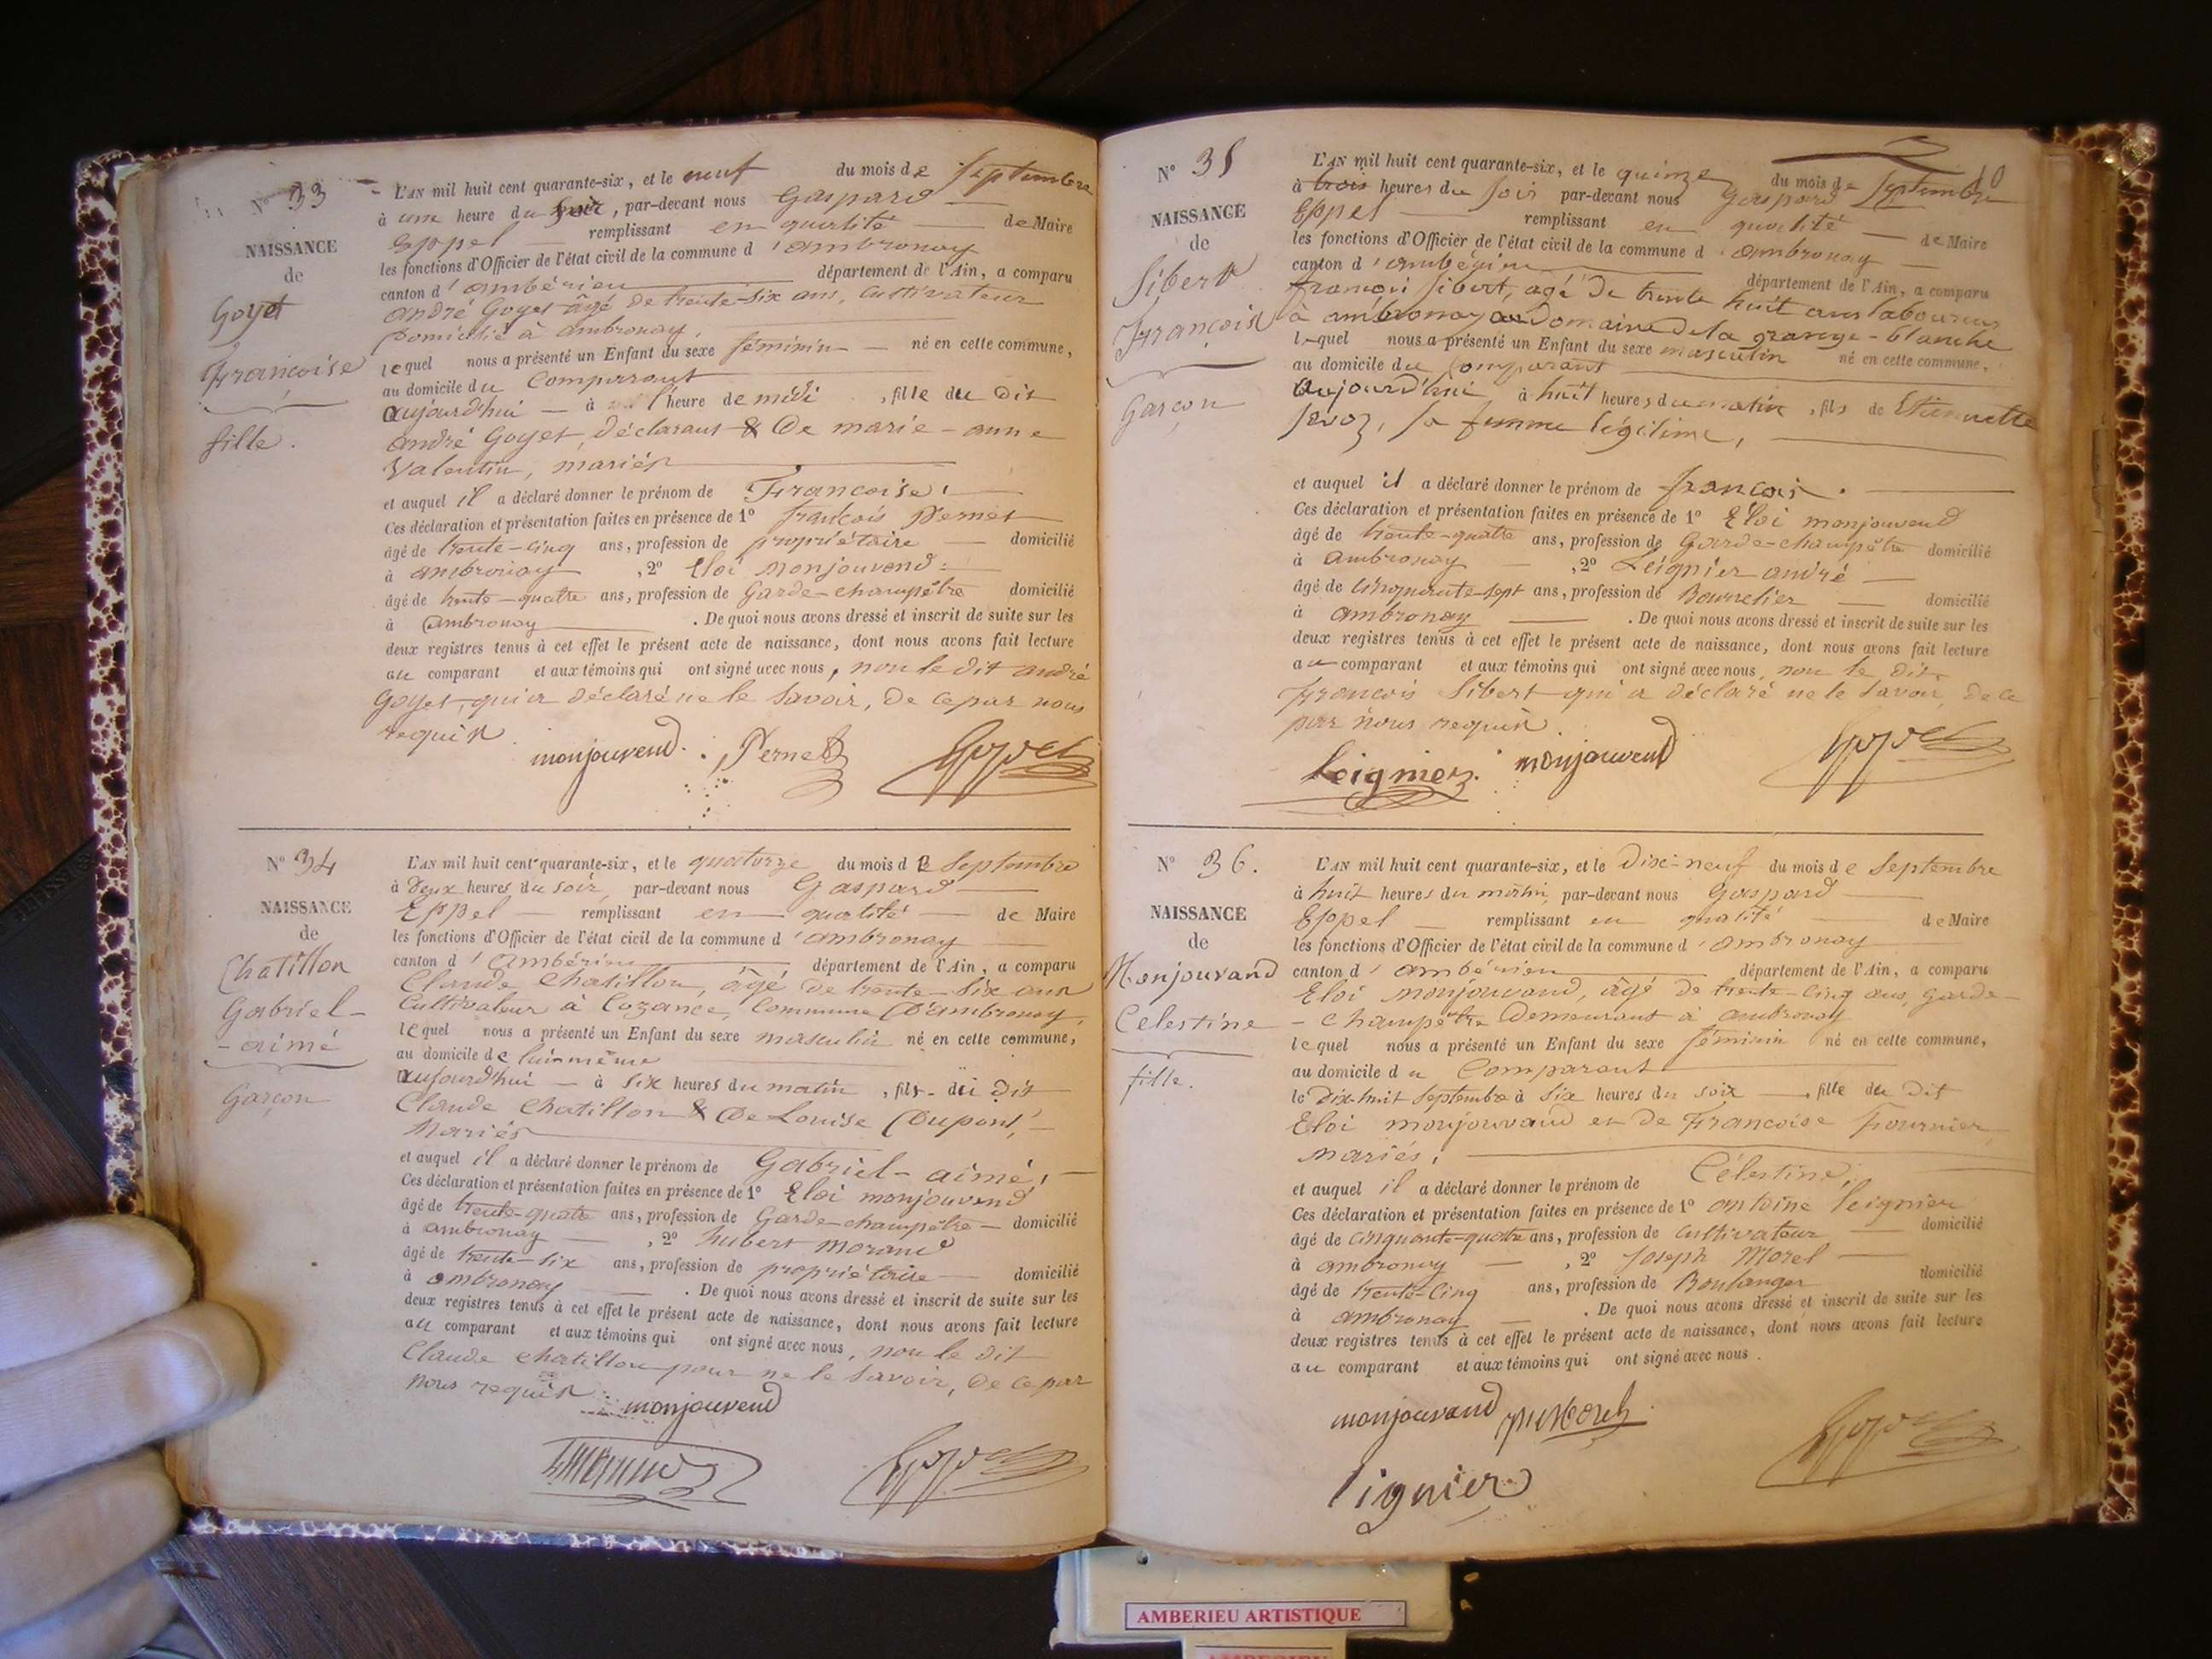 N° 33
NAISSANCE
de
Goyet
Françoise
fille.
L'AN mil huit cent quarante-six, et le neuf du mois de Septembre
à une heure du soir, par-devant nous Gaspard
Eppel remplissant en qualité de Maire
les fonctions d'Officier de l'état civil de la commune d'ambronay
canton d'ambérieu département de l'Ain, a comparu
andré Goyet âgé de trente-six ans, cultivateur
domicilié à ambronay,
lequel nous a présenté un Enfant du sexe féminin né en cette commune,
au domicile du Comparant
aujourd'hui à heure de midi, fille du dit
andré Goyet, déclarant & De marie-anne
Valentin, mariés
et auquel il a déclaré donner le prénom de Françoise,
Ces déclaration et présentation faites en présence de 1° françois Pernet
âgé de trente-cinq ans, profession de propriétaire domicilié
à ambronay, 2° Eloi monjouvend
âgé de trente-quatre ans, profession de Garde-champêtre domicilié
à ambronay. De quoi nous avons dressé et inscrit de suite sur les
deux registres tenus à cet effet le présent acte de naissance, dont nous avons fait lecture
au comparant et aux témoins qui ont signé avec nous, non le dit andré
Goyet, qui a déclaré ne le savoir, de ce par nous
requis
monjouvend. Pernet Eppel
N° 34
NAISSANCE
de
Chatillon
Gabriel-
-aimé
Garçon
L'AN mil huit cent quarante-six, et le quatorze du mois de Septembre
à deux heures du soir, par-devant nous Gaspard
Eppel remplissant en qualité de Maire
les fonctions d'Officier de l'état civil de la commune d'ambronay
canton d'ambérieu département de l'Ain, a comparu
Claude Chatillon, âgé de trente-six ans
Cultivateur à Cozance, Commune d'ambronay,
lequel nous a présenté un Enfant du sexe masculin né en cette commune,
au domicile de lui-même
aujourd'hui à six heures du matin, fils du dit
Claude Chatillon & De Louise Dupont,
Mariés
et auquel il a déclaré donner le prénom de Gabriel-aimé,
Ces déclaration et présentation faites en présence de 1° Eloi monjouvend
âgé de trente-quatre ans, profession de Garde-champêtre domicilié
à ambronay, 2° hubert morand
âgé de trente-six ans, profession de propriétaire domicilié
à ambronay. De quoi nous avons dressé et inscrit de suite sur les
deux registres tenus à cet effet le présent acte de naissance, dont nous avons fait lecture
au comparant et aux témoins qui ont signé avec nous, non le dit
Claude Chatillon pour ne le savoir, de ce par
nous requis.
monjouvend
Eppel
N° 35
NAISSANCE
de
Sibert
François
Garçon
L'AN mil huit cent quarante-six, et le quinze du mois de Septembre
à trois heures du soir par-devant nous Gaspard
Eppel remplissant en qualité de Maire
les fonctions d'Officier de l'état civil de la commune d'ambronay
canton d'ambérieu département de l'Ain, a comparu
françois Sibert, agé de trente huit ans laboureur
à ambronay au Domaine de la grange-blanche
lequel nous a présenté un Enfant du sexe masculin né en cette commune,
au domicile du Comparant
aujourd'hui à huit heures du matin, fils de Etiennette
sa femme légitime,
et auquel il a déclaré donner le prénom de françois.
Ces déclaration et présentation faites en présence de 1° Éloi monjouvend
âgé de trente-quatre ans, profession de Garde-champêtre domicilié
à ambronay, 2° Leignier andré
âgé de cinquante-sept ans, profession de Bourrelier domicilié
à ambronay. De quoi nous avons dressé et inscrit de suite sur les
deux registres tenus à cet effet le présent acte de naissance, dont nous avons fait lecture
au comparant et aux témoins qui ont signé avec nous, non le dit
François Sibert qui a déclaré ne le savoir, de ce
par nous requis.
Leignier. monjouvend Eppel
N° 36.
NAISSANCE
de
Monjouvand
Celestine
fille.
L'AN mil huit cent quarante-six, et le Dix-neuf du mois de Septembre
à huit heures du matin, par-devant nous Gaspard
Eppel remplissant en qualité de Maire
les fonctions d'Officier de l'état civil de la commune d'ambronay
canton d'ambérieu département de l'Ain, a comparu
Eloi monjouvand, âgé de trente-cinq ans, Garde-
-champêtre Demeurant à ambronay
lequel nous a présenté un Enfant du sexe féminin né en cette commune,
au domicile du Comparant
le Dix-huit Septembre à six heures du soir, fille du dit
Eloi monjouvand et de Francoise Fournier
mariés,
et auquel il a déclaré donner le prénom de Célestine,
Ces déclaration et présentation faites en présence de 1° antoine leignier
âgé de cinquante-quatre ans, profession de cultivateur domicilié
à ambronay, 2° Joseph Morel
âgé de trente-cinq ans, profession de Boulanger domicilié
à ambronay. De quoi nous avons dressé et inscrit de suite sur les
deux registres tenus à cet effet le présent acte de naissance, dont nous avons fait lecture
au comparant et aux témoins qui ont signé avec nous.
monjouvand Morel
lignier Eppel
AMBERIEU ARTISTIQUE